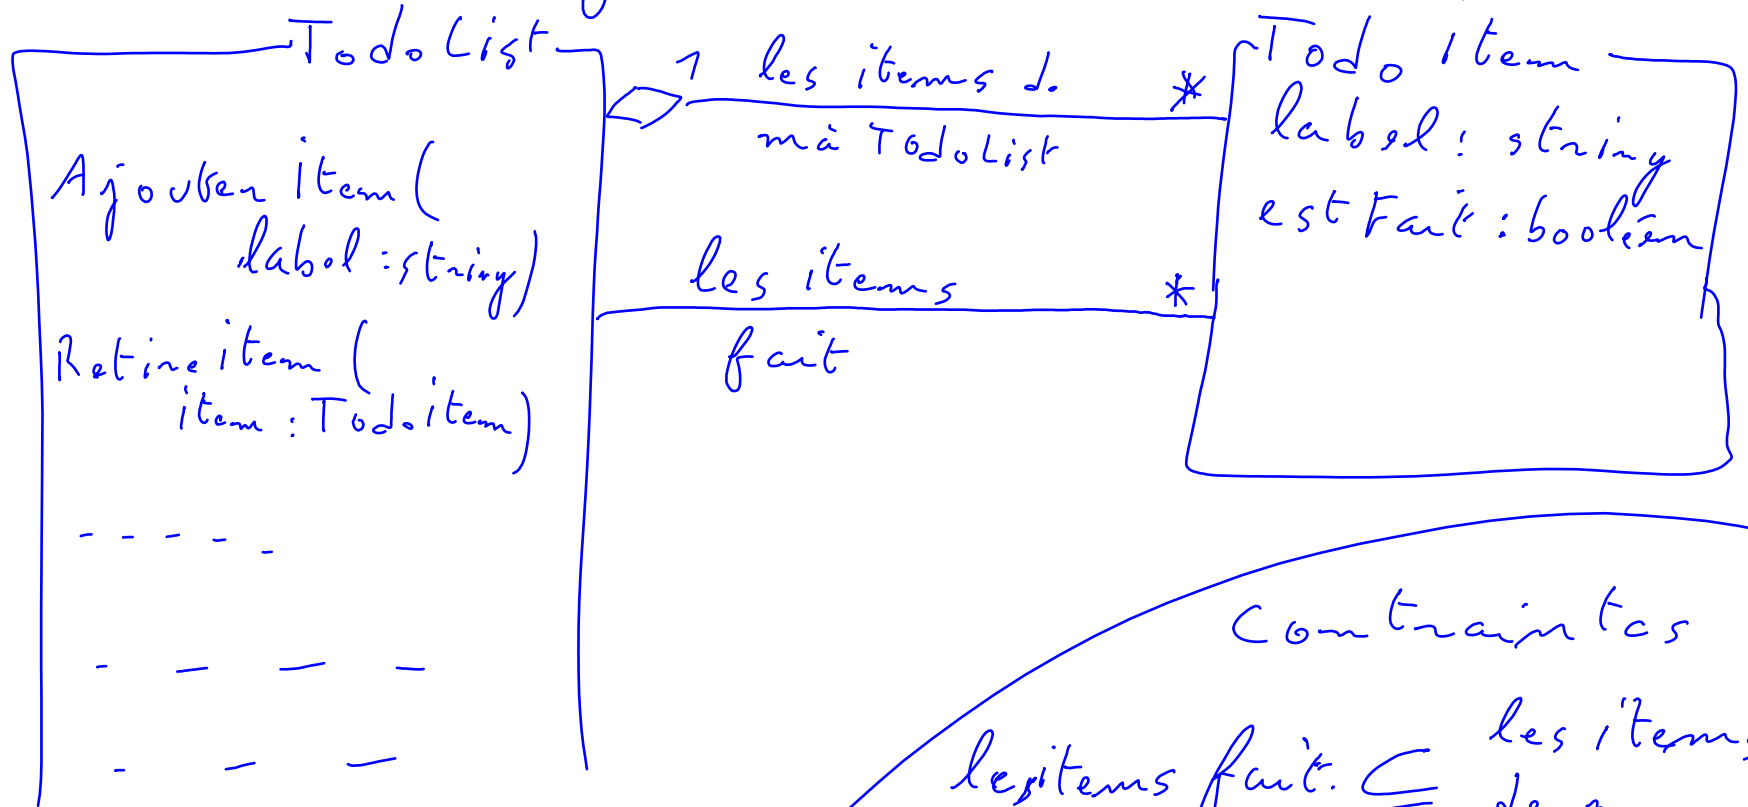 TodoList
Ajouter item (
label : string)
Retire item (
item : Todo item)
1 les items de *
ma TodoList
les items *
fait
Todo item
label : string
estFait : booléen
Contraintes
les items fait ⊆ les items